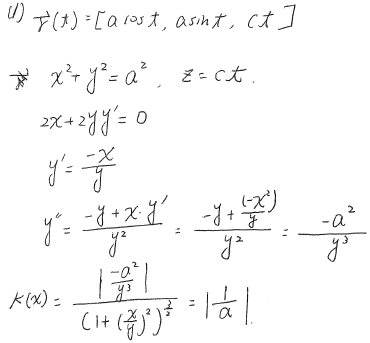 (1) r⃗(t) = [a cos t, a sin t, ct]
x² + y² = a², z = ct.
2x + 2yy' = 0
y' = -x/y
y'' = (-y + x·y')/y² = (-y + (-x²)/y)/y² = -a²/y³
K(x) = |-a²/y³| / (1 + (x/y)²)^(3/2) = |1/a|.